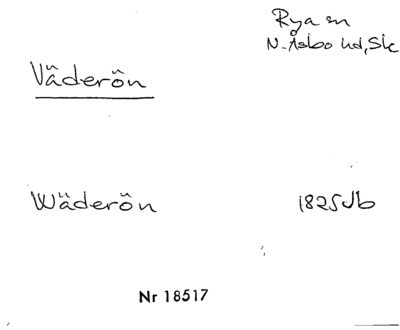 Rya sn
N. Åsbo hd, Sk
Väderön
Wäderön 1825 Jb
Nr 18517